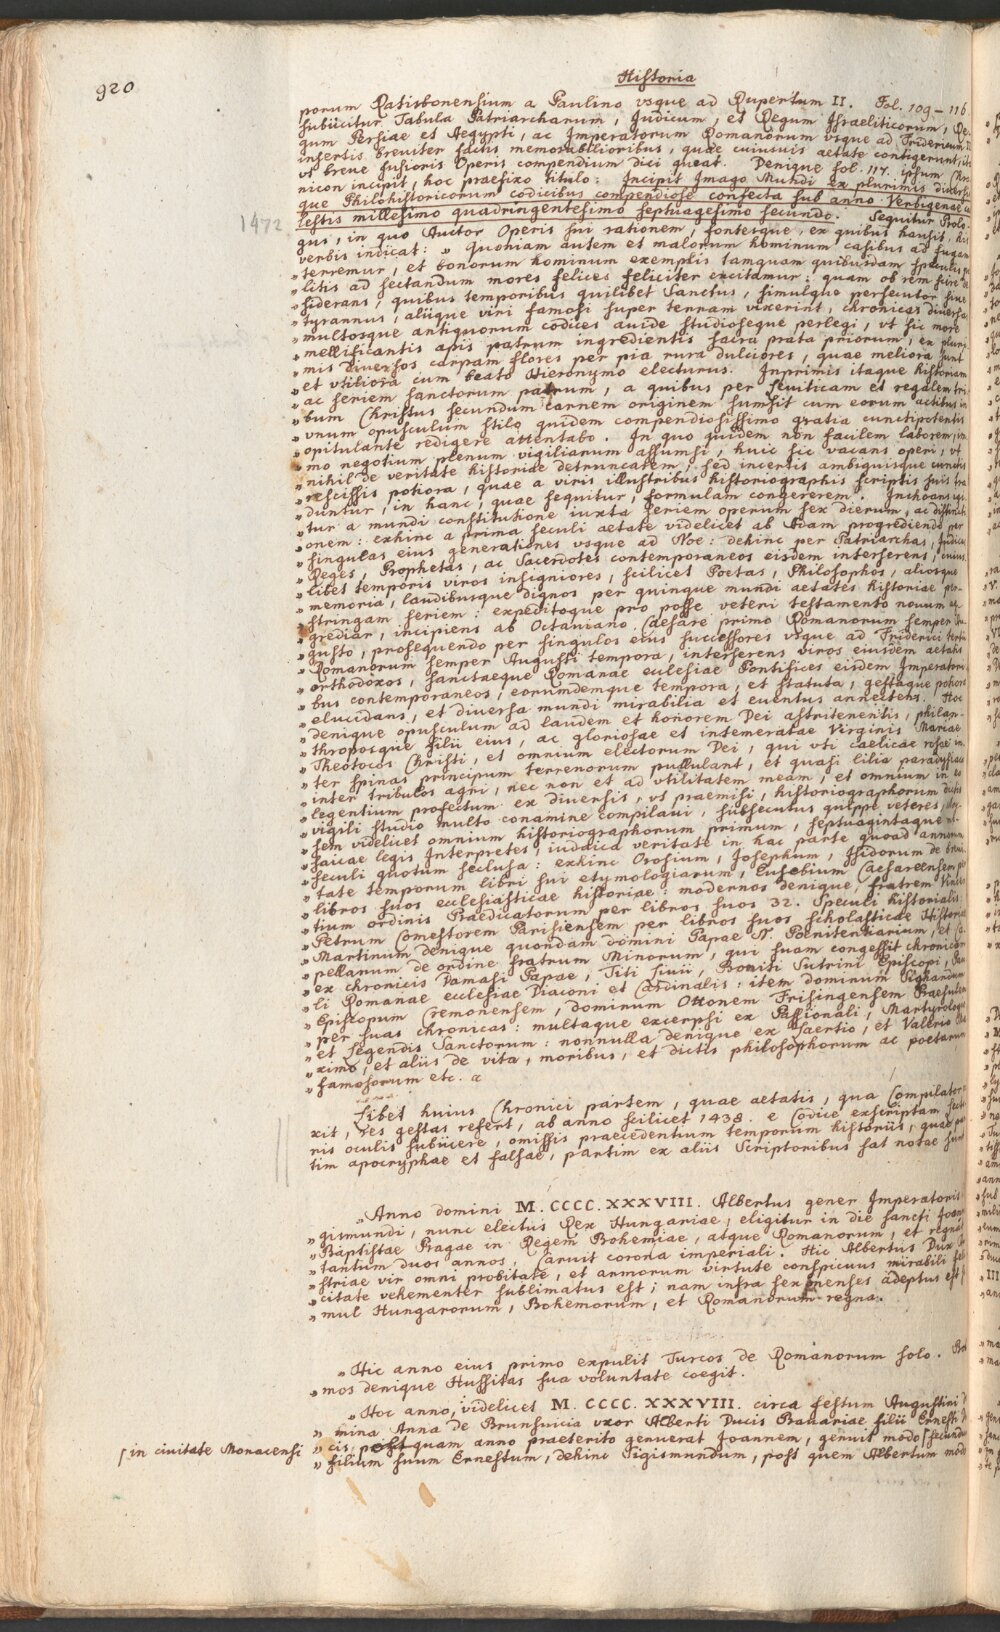 920
Historia
porum Ratisbonensium a Paulino vsque ad Rupertum II. Fol. 109 – 116
subiicitur Tabula Patriarcharum, Judicum, et Regum Israeliticorum, Re-
gum Persiae et Aegypti, ac Imperatorum Romanorum vsque ad Fridericum
insertis breuiter factis memorabilioribus, quae cuiusuis aetate contigerunt,
vt breue fusioris Operis compendium dici queat. Denique fol. 117. ipsum Chro
nicon incipit, hoc praefixo titulo: Incipit Imago Mundi ex plurimis diuersis
que Philohistoricorum codicibus compendiose confecta sub anno Verbigenae
1472
lestis millesimo quadringentesimo septuagesimo secundo. Sequitur Prolo-
gus, in quo Auctor Operis sui rationem, fontesque, ex quibus hausit, his
verbis indicat: „ Quoniam autem et malorum hominum casibus ad fugam
„ terremur, et bonorum hominum exemplis tamquam quibusdam speculis
„ litis ad sectandum mores felices feliciter excitamur: quam ob rem scire
„ siderans, quibus temporibus quilibet Sanctus, simulque persecutor siue
„ tyrannus, aliique viri famosi super terram vixerint, chronicas diuersas
„ multosque antiquorum codices auide studioseque perlegi, vt sic more
„ mellificantis apis patrum ingredientis sacra prata priorum, ex pluri
„ mis diuersos carpam flores per pia rura dulciores, quae meliora sunt
„ et vtiliora cum beato Hieronymo electurus. Inprimis itaque historiam
„ ac seriem sanctorum patrum, a quibus per Leuiticam et regalem tri
„ bum Christus secundum carnem originem sumsit cum eorum actibus in
„ vnum opusculum stilo quidem compendiosissimo gratia cunctipotentis
„ opitulante redigere attentabo. In quo quidem non facilem laborem, im
„ mo negotium plenum vigiliarum assumsi, huic sic vacans operi, vt
„ nihil de veritate historiae detruncarem, sed incertis ambiguisque cunctis
„ rescissis potiora, quae a viris illustribus historiographis scriptis suis tra
„ duntur, in hanc, quae sequitur, formulam congererem. Inchoans
„ tur a mundi constitutione iuxta seriem operum sex dierum, ac
„ onem: exhinc a prima seculi aetate videlicet ab Adam progrediendo per
„ singulas eius generationes vsque ad Noe: dehinc per Patriarchas, Judices
„ Reges, Prophetas, ac Sacerdotes contemporaneos eisdem interserens, cuius
„ libet temporis viros insigniores, scilicet Poetas, Philosophos, aliosque
„ memoria, laudibusque dignos per quinque mundi aetates historiae per-
„ stringam seriem: expeditoque pro posse veteri testamento nouum ag-
„ grediar, incipiens ab Octauiano Caesare primo Romanorum semper Au-
„ gusto, prosequendo per singulos eius successores vsque ad Friderici tertii
„ Romanorum semper Augusti tempora, interserens viros eiusdem aetatis
„ orthodoxos, sanctaeque Romanae ecclesiae Pontifices eisdem Imperatori
„ bus contemporaneos, eorumdemque tempora, et statuta, gestaque potiora
„ elucidans, et diuersa mundi mirabilia et euentus annectens. Hoc
„ denique opusculum ad laudem et honorem Dei astritenentis, philan-
„ throposque filii eius, ac gloriosae et intemeratae Virginis Mariae
„ Theotocos Christi, et omnium electorum Dei, qui vti caelicae rosae in-
„ ter spinas principum terrenorum pullulant, et quasi lilia paradysiaca
„ inter tribulos agri, nec non et ad vtilitatem meam, et omnium in eo
„ legentium profectum ex diuersis, vt praemisi, historiographorum dictis
„ vigili studio multo conamine compilaui, subsecutus quippe veteres,
„ sem videlicet omnium historiographorum primum, septuagintaque
„ saicae legis Interpretes, iudaica veritate in hac parte quoad annorum
„ seculi quotum seclusa: exhinc Orosium, Josephum, Isidorum de breui
„ tate temporum libri sui etymologiarum, Eusebium Caesareensem per
„ libros suos ecclesiasticae historiae: modernos denique, fratrem Vincen
„ tium ordinis Praedicatorum per libros suos 32. Speculi historialis:
„ Petrum Comestorem Parisiensem per libros suos scholasticae Historiae
„ Martinum denique quondam domini Papae N. Poenitentiarium, et Ca
„ pellanum de ordine fratrum Minorum, qui suam congessit chronicam
„ ex chronicis Damasi Papae, Titi Liuii, Boniti Sutrini Episcopi, Pau
„ li Romanae ecclesiae Diaconi et Cardinalis: item dominum Sighardum
„ Episcopum Cremonensem, dominum Ottonem Frisingensem Praesulem
„ per suas chronicas: multaque excerpsi ex Passionali, Martyrologio
„ et Legendis Sanctorum: nonnulla denique ex Laertio, et Valerio Ma
„ ximo, et aliis de vita, moribus, et dictis philosophorum ac poetarum
„ famosorum etc. a
Libet huius Chronici partem, quae aetatis, qua Compilator
xit, res gestas refert, ab anno scilicet 1438. e Codice exscriptam lecto
ris oculis subiicere, omissis praecedentium temporum historiis, quae par
tim apocryphae et falsae, partim ex aliis Scriptoribus sat notae sunt
„ Anno domini M. CCCC. XXXVIII. Albertus gener Imperatoris
„ gismundi, nunc electus Rex Hungariae, eligitur in die sancti Joan
„ Baptistae Pragae in Regem Bohemiae, atque Romanorum, et regna
„ tantum duos annos, caruit corona imperiali. Hic Albertus Dux
„ striae vir omni probitate, et armorum virtute conspicuus mirabili fe
„ citate vehementer sublimatus est; nam infra sex menses adeptus est
„ mul Hungarorum, Bohemorum, et Romanorum regna.
„ Hic anno eius primo expulit Turcos de Romanorum solo. Bohe
„ mos denique Hussitas sua voluntate coegit.
„ Hoc anno, videlicet M. CCCC. XXXVIII. circa festum Augustini
„ mina Anna de Brunsuicia vxor Alberti Ducis Bauariae filii Ernesti
„ cis, postquam anno praeterito genuerat Joannem, genuit modo ⌠ secundum
⌠ in ciuitate Monacensi
„ filium suum Ernestum, dehinc Sigismundum, post quem Albertum